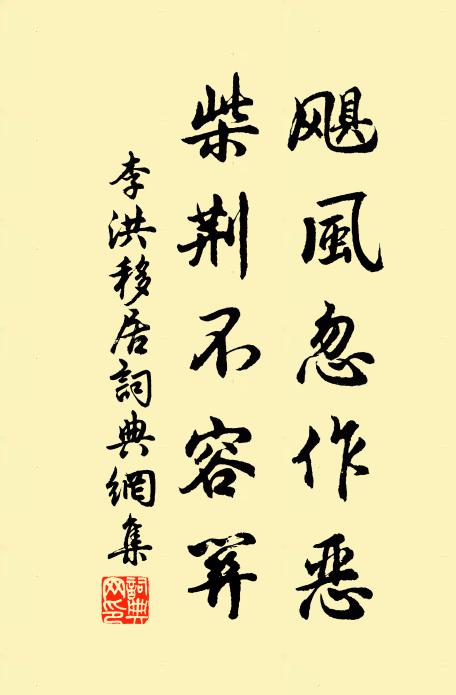 颶風忽作惡
柴荆不容
李洪移居詞典網集
詞典網印